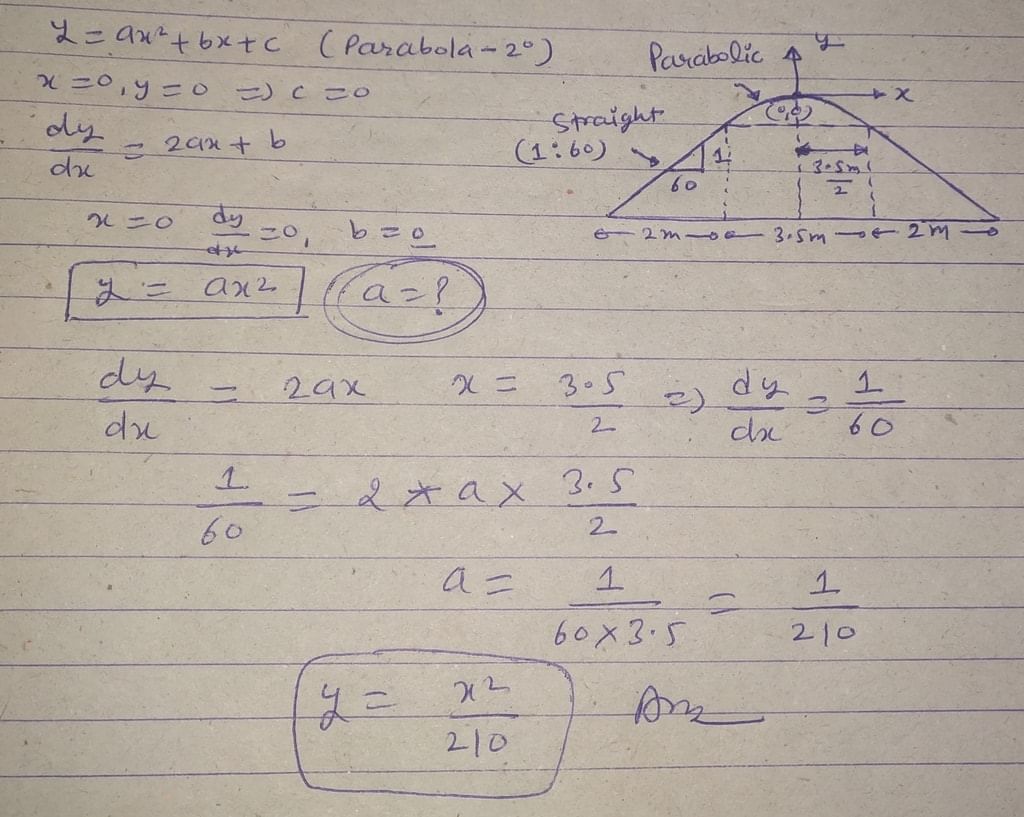 y = ax² + bx + c (Parabola - 2°)
x = 0, y = 0 => c = 0
dy/dx = 2ax + b
x = 0 dy/dx = 0, b = 0
y = ax² a = ?
Parabolic y
x
(0,0)
Straight
(1:60)
1
60
3.5m/2
2m 3.5m 2m
dy/dx = 2ax x = 3.5/2 => dy/dx = 1/60
1/60 = 2 * a × 3.5/2
a = 1/60×3.5 = 1/210
y = x²/210 Ans